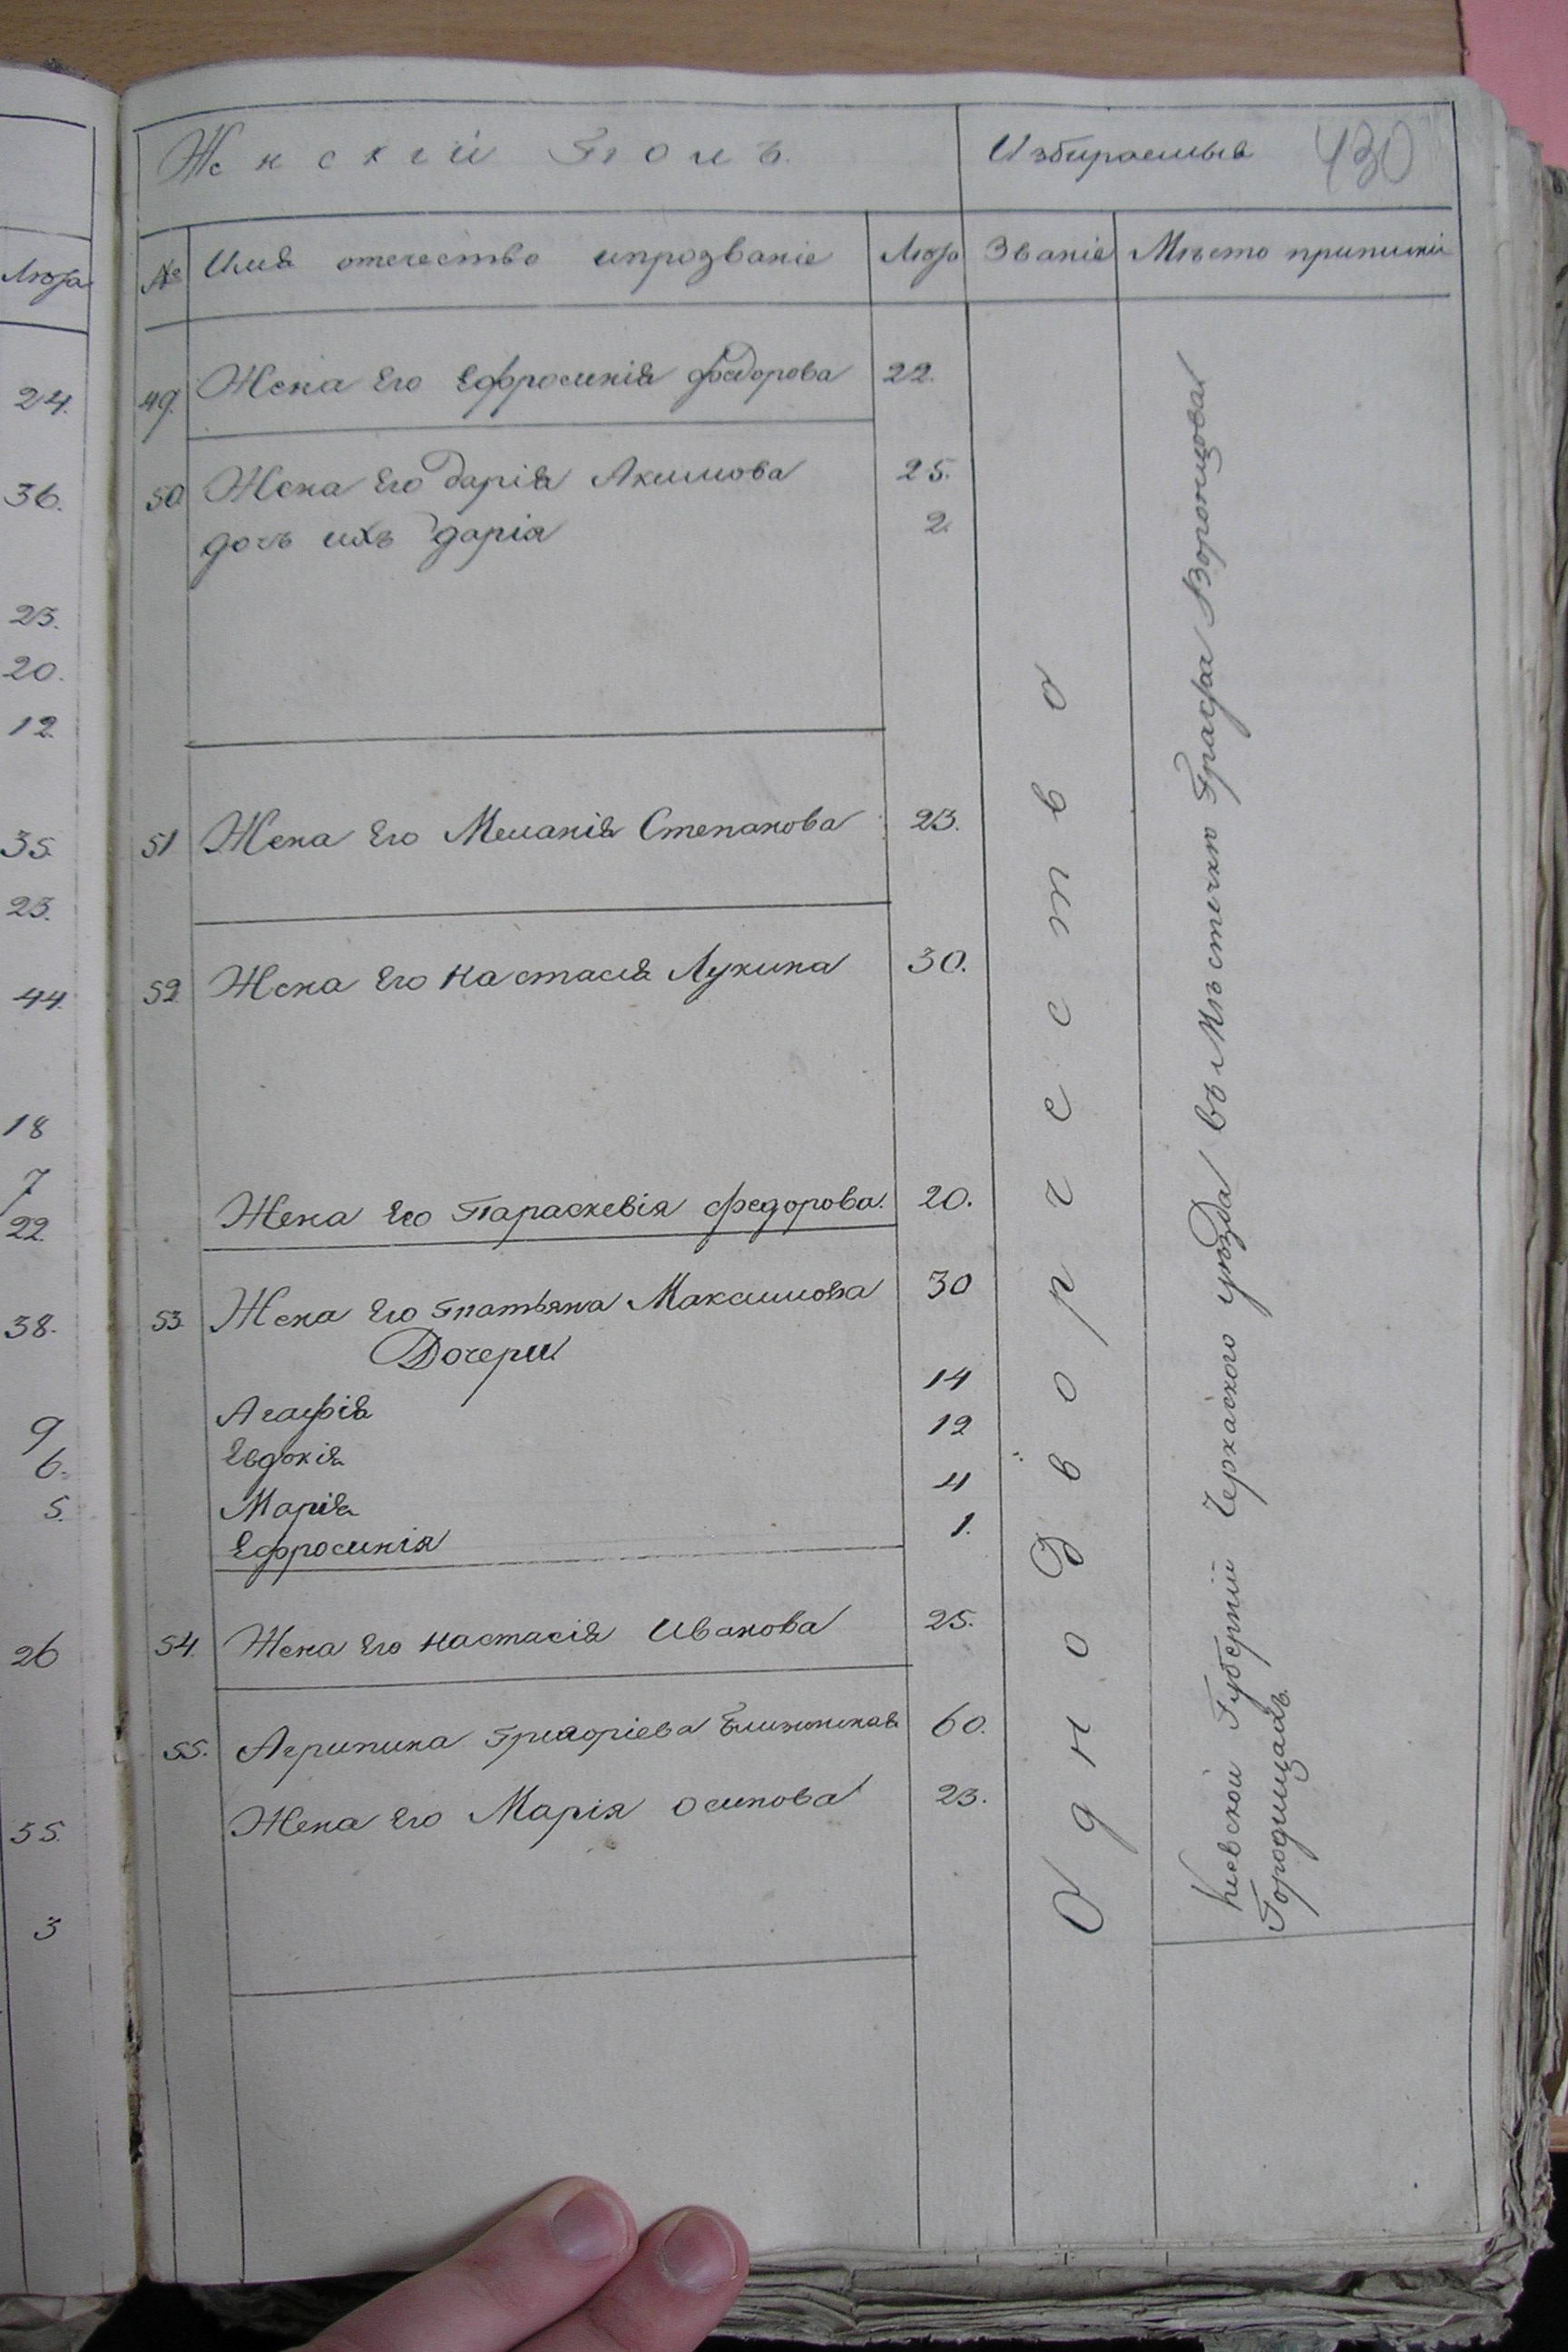 Лѣта
24.
36.
23.
20.
12.
35.
23.
44.
18
7
22.
38.
9
6.
5.
26
55.
3
Женскій Полъ.
Избираемыя
430
№
Имя отечество ипрозваніе
Лѣта
Званіе
Мѣсто приписки
49. Жена Его Ефросинія Федорова 22.
50 Жена Его Дарія Акимова 25.
дочь ихъ Дарія 2.
51 Жена Его Меланія Степанова 23.
52 Жена Его Настасія Лукина 30.
Жена Его Параскевія Федорова. 20.
53 Жена Его Татьяна Максимова 30
Дочери
Агафія 14
Евдокія 12
Марія 4
Ефросинія 1.
54. Жена Его Настасія Иванова 25.
55. Агрипина Григоріева 60.
Жена Его Марія Осипова 23.
Однодворчество
Кіевской Губерніи Черкаского уѣзда въ Мѣстечкѣ Графа Воронцова
Городищахъ.